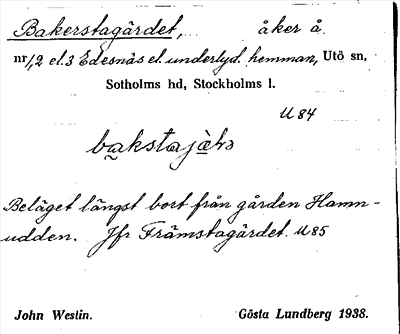 Bakerstagärdet, åker å
nr 1, 2 el. 3 Edesnäs el. underlyd. hemman, Utö sn,
Sotholms hd, Stockholms l.
U 84
Beläget längst bort från gården Hamn-
udden. Jfr Främstagärdet. U 85
John Westin. Gösta Lundberg 1938.